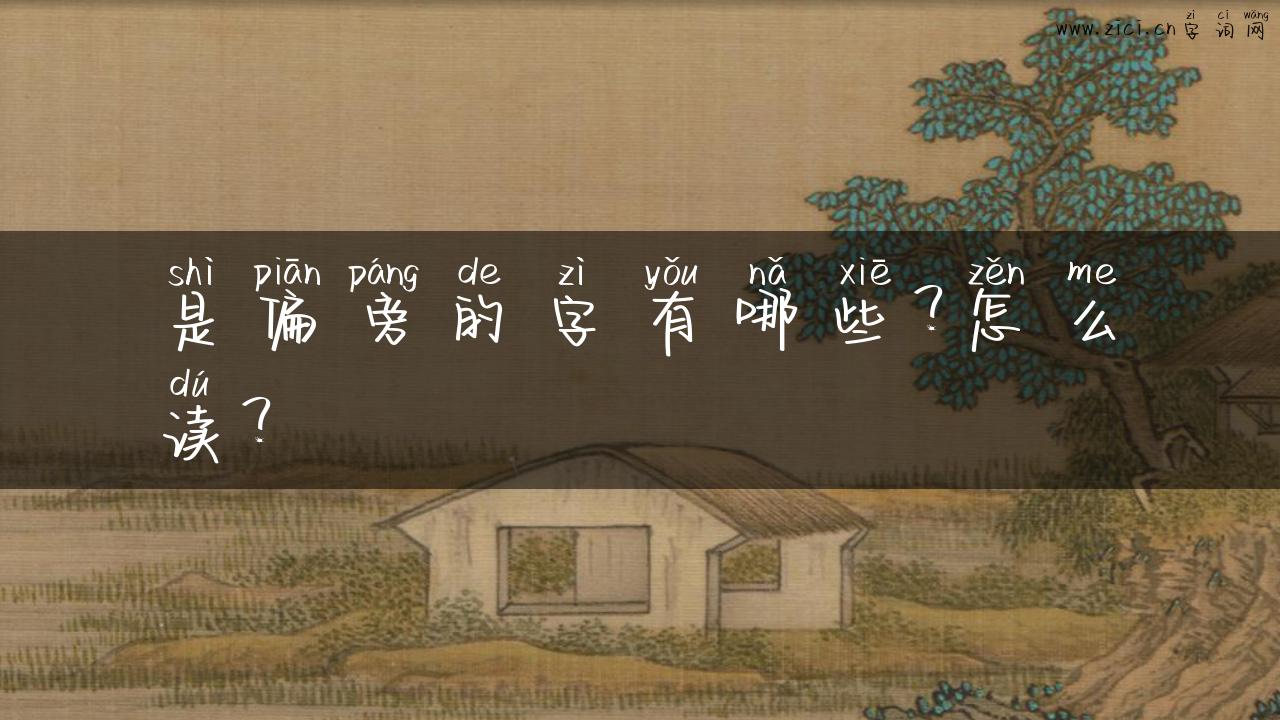 zì cí wǎng
www.zici.cn 字词网
shì piān páng de zì yǒu nǎ xiē zěn me
是偏旁的字有哪些？怎么
dú
读？